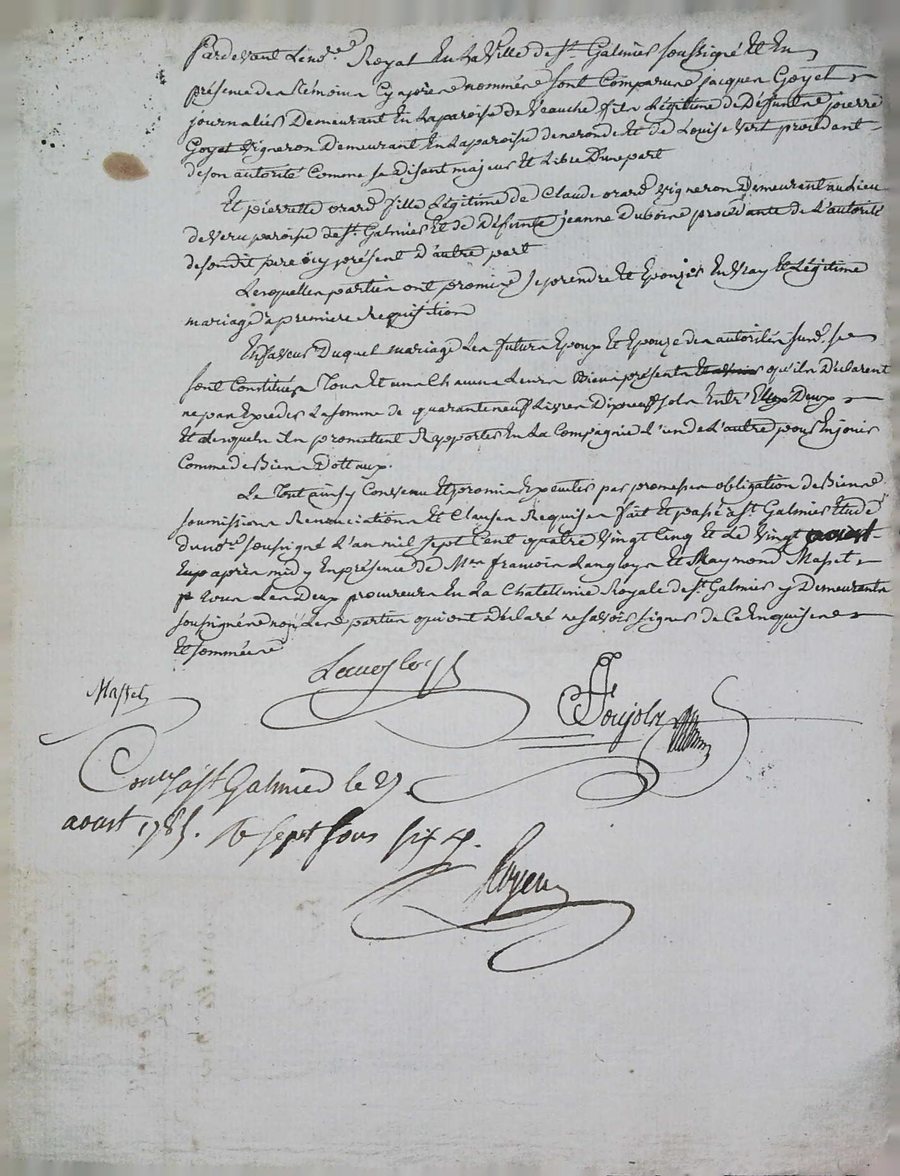 Pardevant Le no.re Royal En La Ville de St. Galmier soussigné Et En
présence des témoins Cy après nommés sont Comparus Jacques Goyet
journalier Demeurant En La paroisse de Veauche fils Légitime de Défunt pierre
Goyet Vigneron Demeurant En La paroisse de neronde Et de Louise Vert procédant
de son autorité Comme se disant majeur Et Libre D'une part
Et pierrette orard fille Légitime de Claude orard Vigneron Demeurant au Lieu
de Veru paroisse de St. Galmier Et de Défunte jeanne Dubois procédante de L'autorité
de sondit pere icy présent D'autre part
Lesquelles parties ont promis se prendre Et Epouzer En Vray Et Légitime
mariage à premiere Requisition
En faveur Duquel mariage Les futurs Epoux Et Epouze des autorités sus.d. se
sont Constitués Tous Et uns Chacuns Leurs Biens présents qu'ils Déclarent
ne pas Excéder La somme de quarante neuf Livres Dixneuf sols Entr' Eux Deux
Et Lesquels ils promettent Rapporter En La Compagnie L'un de L'autre pour En jouir
Comme de Biens Dottaux.
Le Tout ainsy Convenu Et promis Exécuter par promesses obligation de Biens
soumissions Renonciations Et Clauses Requises fait et passé à St. Galmier Etude
du no.re soussigné L'an mil sept Cent quatre Vingt Cinq Et Le Vingt aoust
après midy En présence de Mes. francois Langloys Et Raymond Masset
tous Les Deux procureurs En La Chatellenie Royale de St. Galmier y Demeurants
soussignés non Les parties qui ont Déclaré ne savoir signer de Ce Enquises
Et sommées
Langloys
Masset
Poujols
Con.lé à St. Galmier le 27
aoust 1785. Ré sept sous six d.